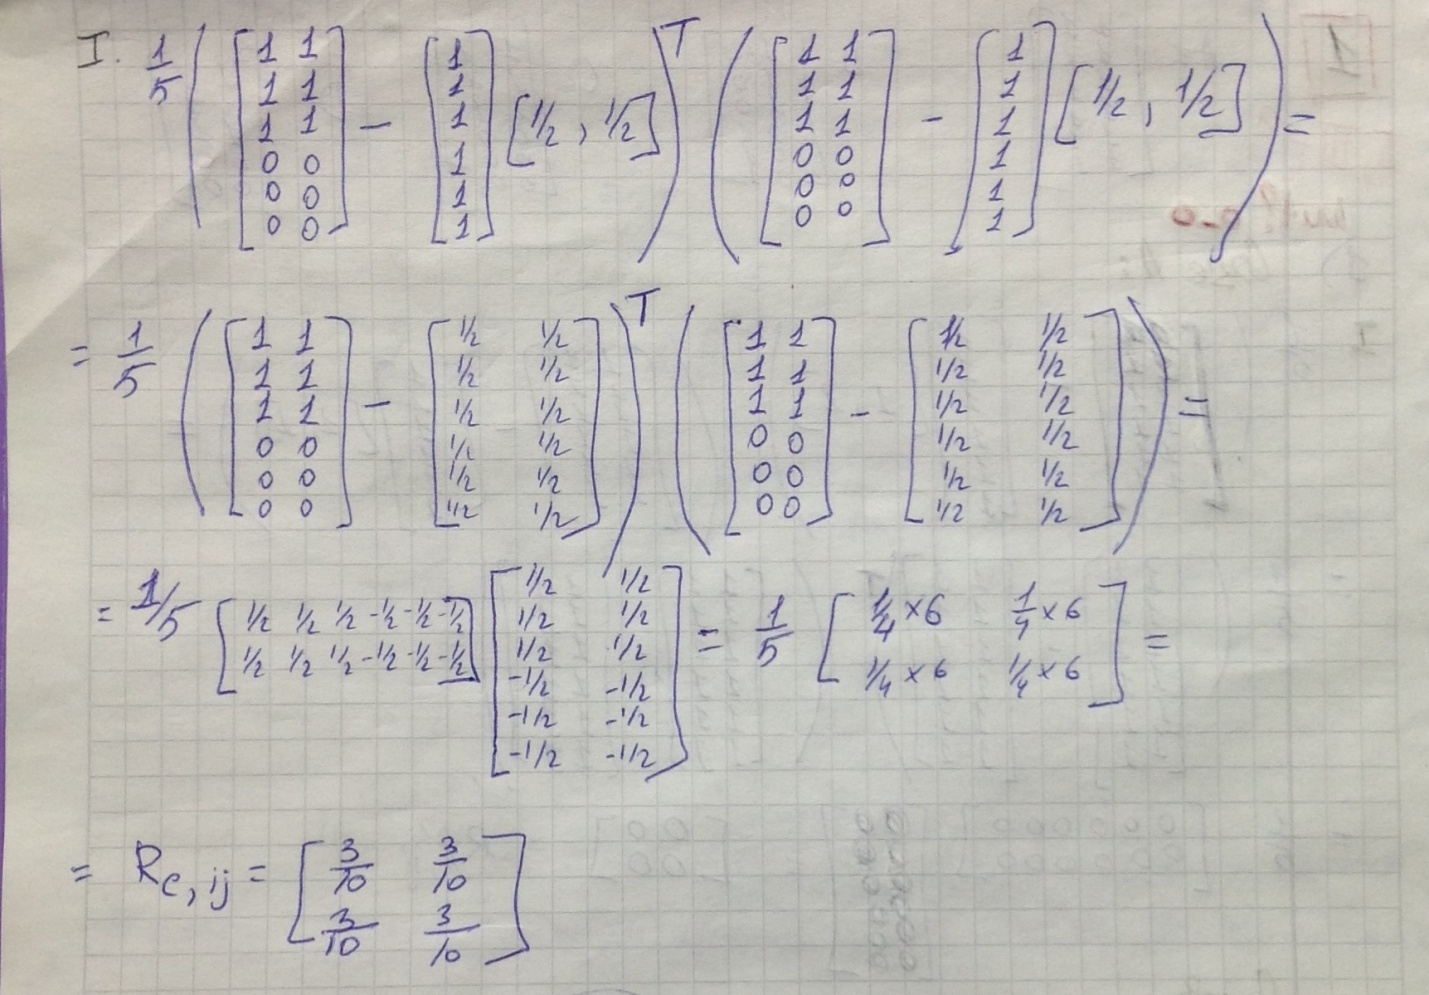 I. 1/5 ( [1 1; 1 1; 1 1; 0 0; 0 0; 0 0] - [1; 1; 1; 1; 1; 1] [1/2, 1/2] )^T ( [1 1; 1 1; 1 1; 0 0; 0 0; 0 0] - [1; 1; 1; 1; 1; 1] [1/2, 1/2] ) =
= 1/5 ( [1 1; 1 1; 1 1; 0 0; 0 0; 0 0] - [1/2 1/2; 1/2 1/2; 1/2 1/2; 1/2 1/2; 1/2 1/2; 1/2 1/2] )^T ( [1 1; 1 1; 1 1; 0 0; 0 0; 0 0] - [1/2 1/2; 1/2 1/2; 1/2 1/2; 1/2 1/2; 1/2 1/2; 1/2 1/2] ) =
= 1/5 [1/2 1/2 1/2 -1/2 -1/2 -1/2; 1/2 1/2 1/2 -1/2 -1/2 -1/2] [1/2 1/2; 1/2 1/2; 1/2 1/2; -1/2 -1/2; -1/2 -1/2; -1/2 -1/2] = 1/5 [1/4×6 1/4×6; 1/4×6 1/4×6] =
= R_c,ij = [3/10 3/10; 3/10 3/10]